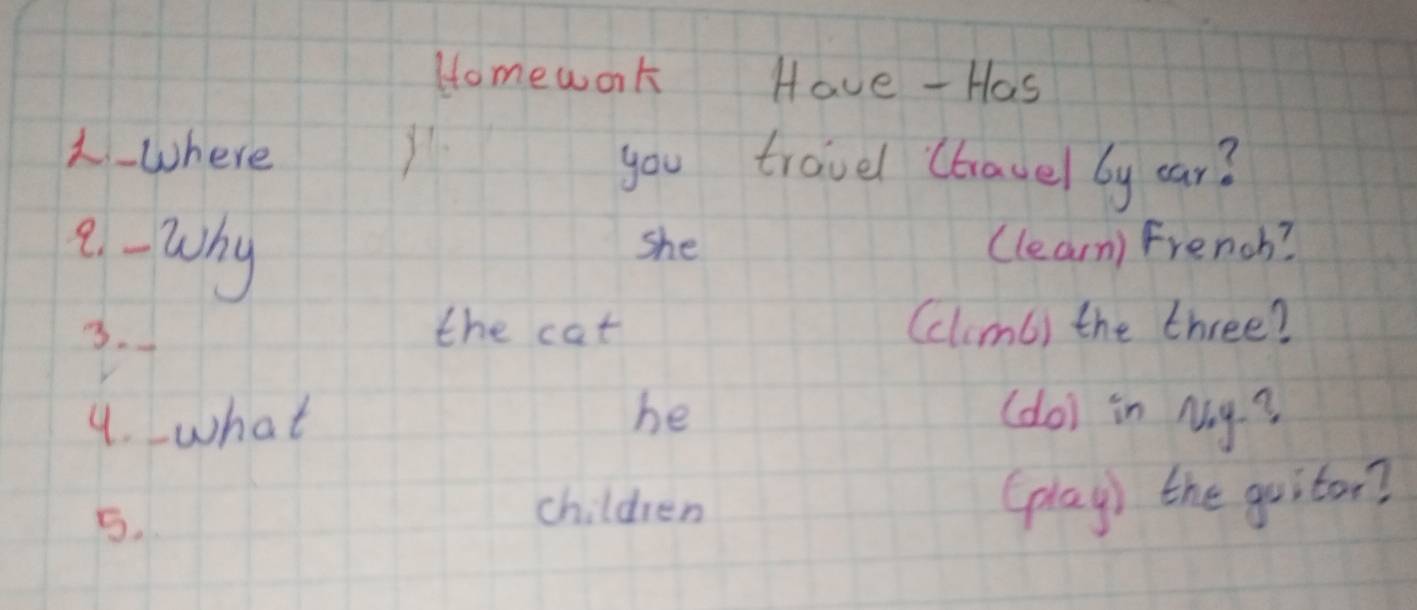 Homework Have - Has
1.-Where you travel (travel by car?
2.-Why she (learn) French?
3.- the cat (climb) the three?
4.-what he (do) in N.y.?
5. children (play) the guitar?